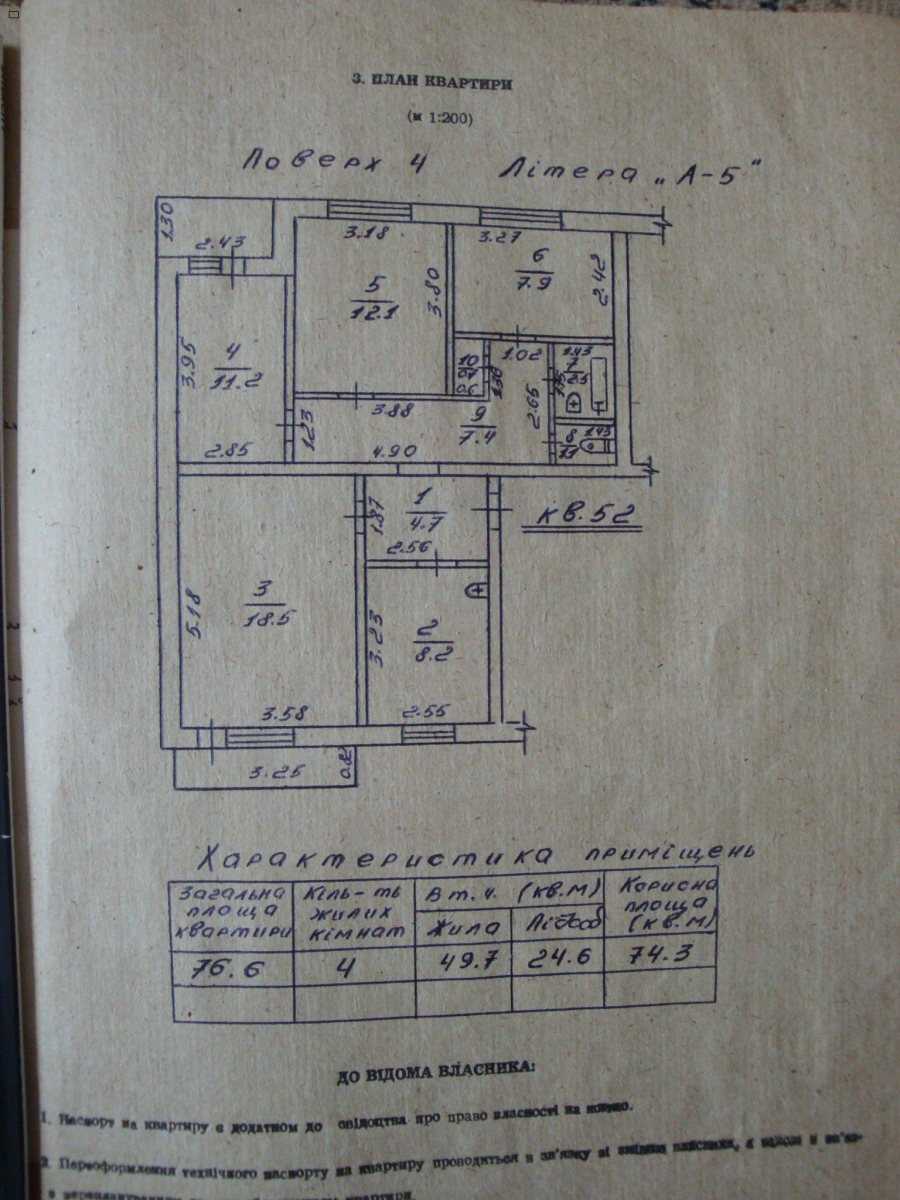 3. ПЛАН КВАРТИРИ
(м 1:200)
Поверх 4 Літера „А-5"
1.30
2.43
3.18
3.27
5
12.1
3.80
6
7.9
2.42
3.95
4
11.2
2.85
1.23
3.88
4.90
10
1.30
1.02
9
7.4
2.65
1.43
8
1.1
1.43
1
4.7
1.87
2.56
кв.52
3
18.5
5.18
3.58
2
8.2
3.23
2.55
3.25
0.82
Характеристика приміщень
Загальна площа квартири
Кіль-ть жилих кімнат
В т.ч. (кв.м)
Жила
Підсоб
Корисна площа (кв.м)
76.6 4 49.7 24.6 74.3
ДО ВІДОМА ВЛАСНИКА:
1. Паспорт на квартиру є додатком до свідоцтва про право власності на житло.
2. Переоформлення технічного паспорту на квартиру проводиться в зв'язку зі
квартири.